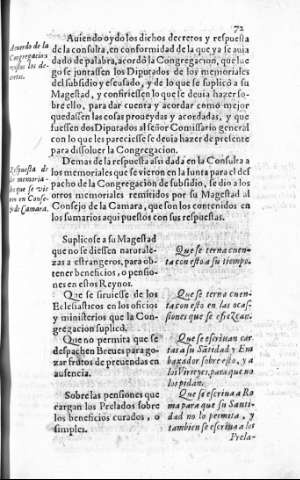 72
Auiendo oydo los dichos decretos y respuesta
de la consulta, en conformidad de la que ya se auia
dado de palabra, acordò la Congregacion, que lue-
go se juntassen los Diputados de los memoriales
del subsidio y escusado, y de lo que se suplicò a su
Magestad, y confiriessen lo que se deuia hazer so-
bre ello, para dar cuenta y acordar como mejor
quedassen las cosas proueydas y acordadas, y que
fuessen dos Diputados al señor Comissario general
con lo que les pareciesse se deuia hazer de presente
para dissoluer la Congregacion.
Acuerdo de la
Congregacion
vistos los de-
cretos.
Demas de la respuesta assi dada en la Consulta a
los memoriales que se vieron en la Iunta para el des
pacho de la Congregacion de subsidio, se dio a los
otros memoriales remitidos por su Magestad al
Consejo de la Camara, que son los contenidos en
los sumarios aqui puestos con sus respuestas.
Respuesta de
los memoria-
les que se vie
ron en Conse-
jo de Camara.
Suplicose a su Magestad
que no se diessen naturale-
zas a estrangeros, para ob-
tener beneficios, o pensio-
nes en estos Reynos.
Que se terna cuen-
ta con esto a su tiempo.
Que se siruiesse de los
Eclesiasticos en los oficios
y ministerios que la Con-
gregacion suplicò.
Que se terna cuen-
ta con esto en las oca-
siones que se ofrezcan.
Que no permita que se
despachen Breues para go-
zar frutos de preuendas en
ausencia.
Que se escriuan car-
tas a su Sãtidad y Em
baxador sobre esto, y a
los Virreyes, para que no
los pidan.
Sobre las pensiones que
cargan los Prelados sobre
los beneficios curados, o
simples.
Que se escriua a Ro
ma para que su Santi-
dad no lo permita, y
tambien se escriua a los
Prela-